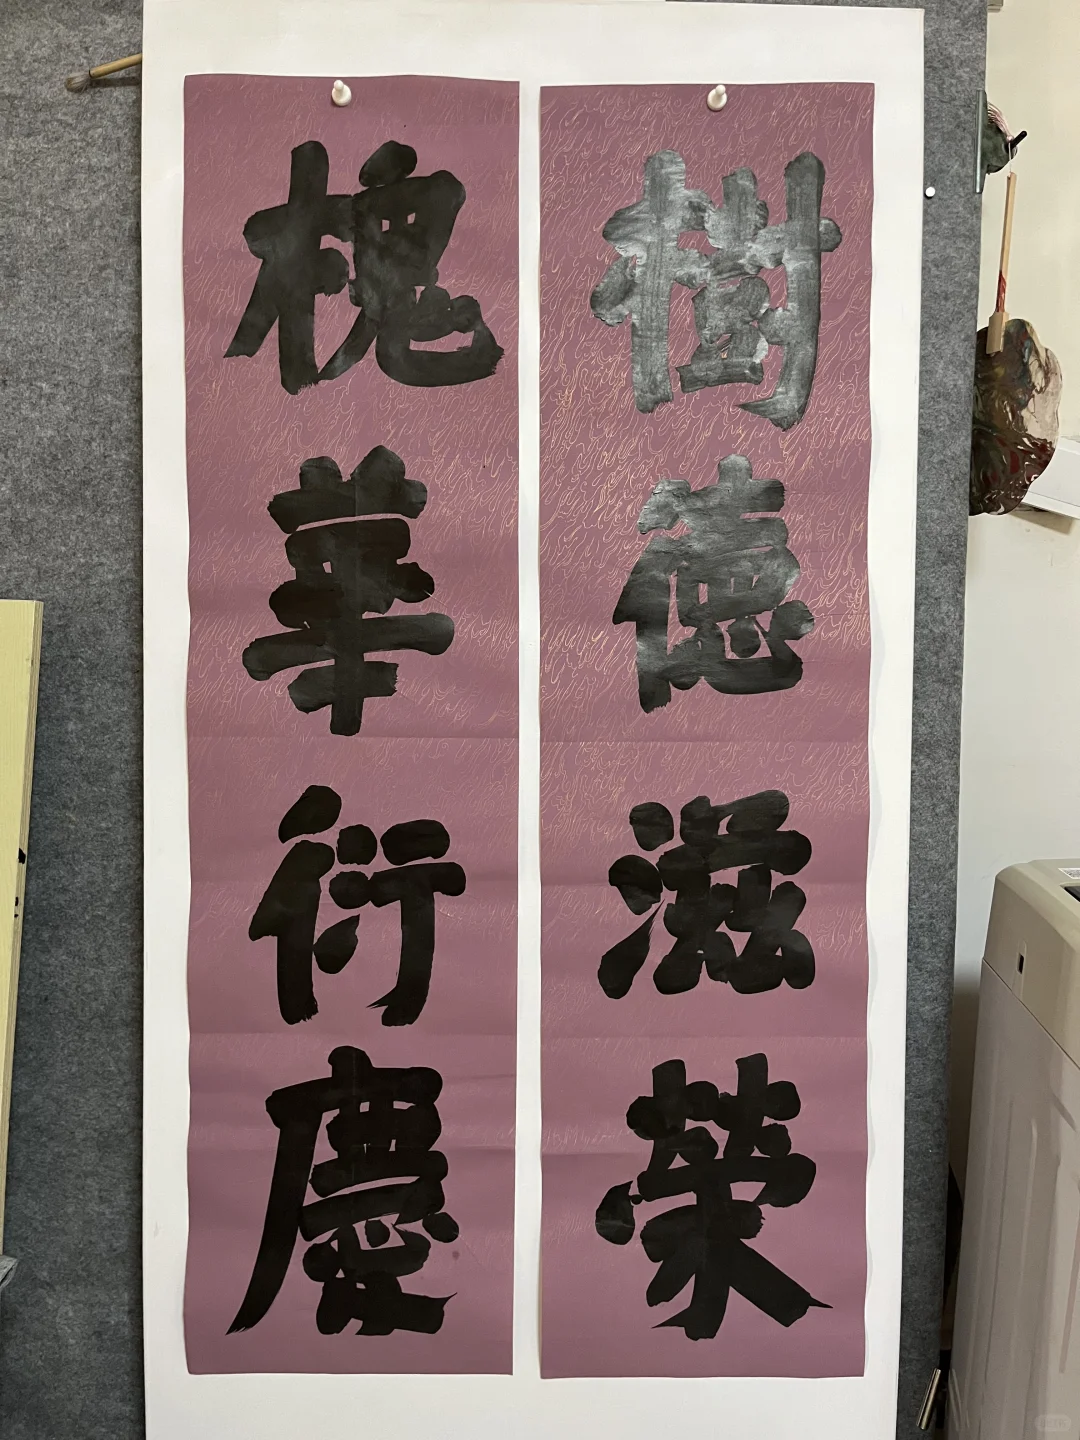 樹德滋榮
槐華衍慶